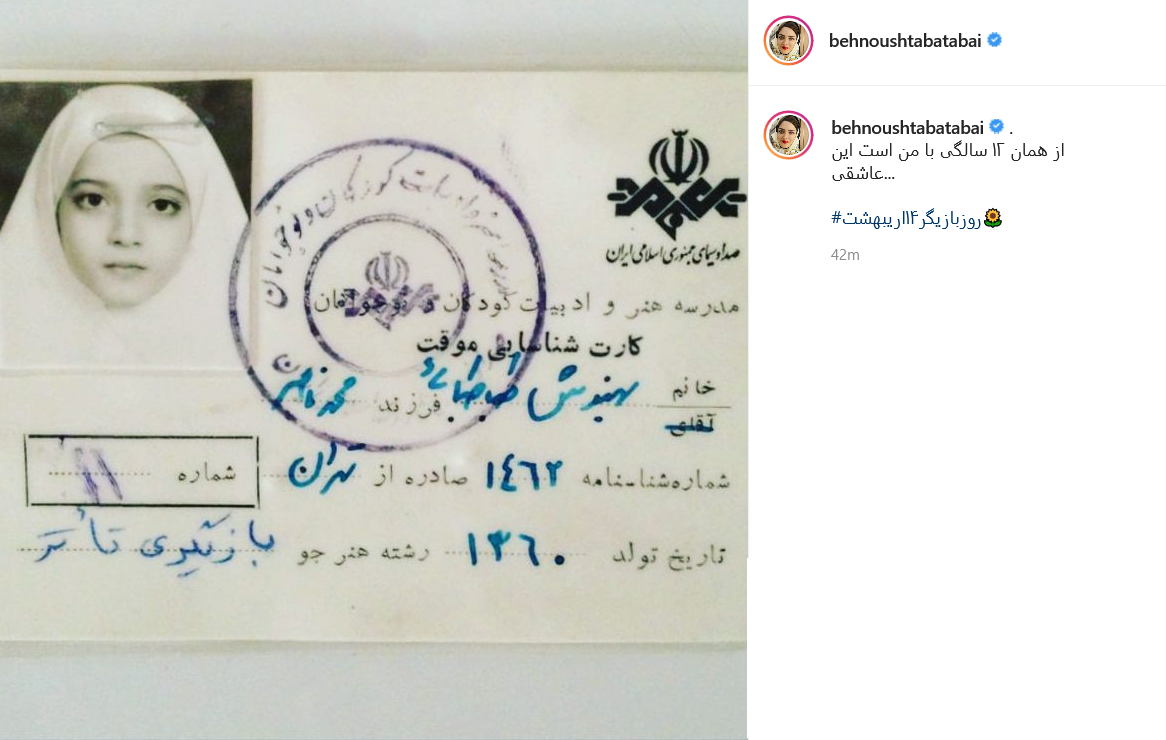 صدا و سیمای جمهوری اسلامی ایران
مدرسه هنر و ادبیات کودکان و نوجوانان
کارت شناسایی موقت
خانم بهنوش طباطبائی فرزند محمد ناصر
آقای
شماره شناسنامه ۱۴۶۲ صادره از تهران
شماره ۱۱
تاریخ تولد ۱۳۶۰ رشته هنر جو بازیگری تأتر
ادبیات کودکان و نوجوانان
behnoushtabatabai
behnoushtabatabai .
از همان ۱۲ سالگی با من است این
عاشقی...
#روزبازیگر۱۴اریبهشت🌻
42m